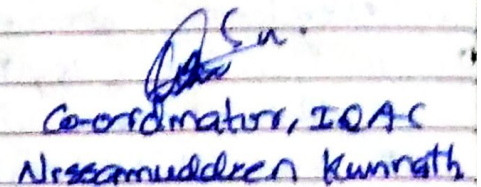 Co-ordinator, IQAC
Nissamuddeen Kunnath